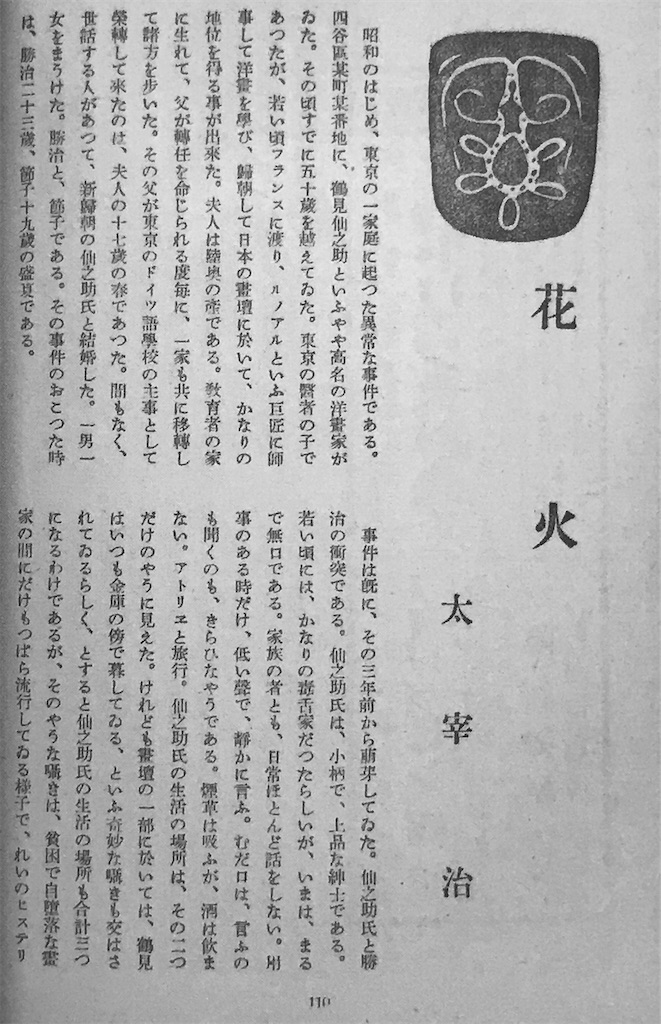 花火
太宰治
昭和のはじめ、東京の一家庭に起つた異常な事件である。
四谷區某町某番地に、鶴見仙之助といふやや高名の洋畫家が
ゐた。その頃すでに五十歲を越えてゐた。東京の醫者の子で
あつたが、若い頃フランスに渡り、ルノアルといふ巨匠に師
事して洋畫を學び、歸朝して日本の畫壇に於いて、かなりの
地位を得る事が出來た。夫人は陸奥の產である。敎育者の家
に生れて、父が轉任を命じられる度每に、一家も共に移轉し
て諸方を步いた。その父が東京のドイツ語學校の主事として
榮轉して來たのは、夫人の十七歲の春であつた。間もなく、
世話する人があつて、新歸朝の仙之助氏と結婚した。一男一
女をまうけた。勝治と、節子である。その事件のおこつた時
は、勝治二十三歲、節子十九歲の盛夏である。
事件は既に、その三年前から萌芽してゐた。仙之助氏と勝
治の衝突である。仙之助氏は、小柄で、上品な紳士である。
若い頃には、かなりの毒舌家だつたらしいが、いまは、まる
で無口である。家族の者とも、日常ほとんど話をしない。用
事のある時だけ、低い聲で、靜かに言ふ。むだ口は、言ふの
も聞くのも、きらひなやうである。煙草は吸ふが、酒は飮ま
ない。アトリヱと旅行。仙之助氏の生活の場所は、その二つ
だけのやうに見えた。けれども畫壇の一部に於いては、鶴見
はいつも金庫の傍で暮してゐる、といふ奇妙な囁きも交はさ
れてゐるらしく、とすると仙之助氏の生活の場所も合計三つ
になるわけであるが、そのやうな囁きは、貧困で自墮落な畫
家の間にだけもつぱら流行してゐる樣子で、れいのヒステリ
110